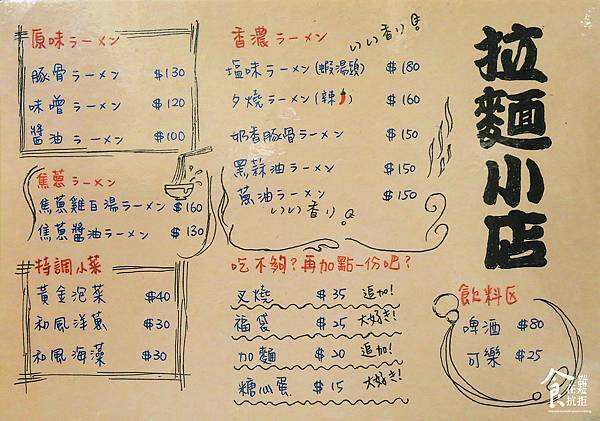 拉麵小店
原味ラーメン
豚骨ラーメン $130
味噌ラーメン $120
醬油ラーメン $100
焦蔥ラーメン
焦蔥雞白湯ラーメン $160
焦蔥醬油ラーメン $130
特調小菜
黃金泡菜 $40
和風洋蔥 $30
和風海藻 $30
香濃ラーメン
いい香り
塩味ラーメン(蝦湯頭) $180
夕燒ラーメン(辣) $160
奶香豚骨ラーメン $150
黑蒜油ラーメン $150
蔥油ラーメン $150
いい香り
吃不夠?再加點一份吧?
叉燒 $35 追加!
福袋 $25 大好き!
加麵 $20 追加!
糖心蛋 $15 大好き!
飲料區
啤酒 $80
可樂 $25
食在難抗拒